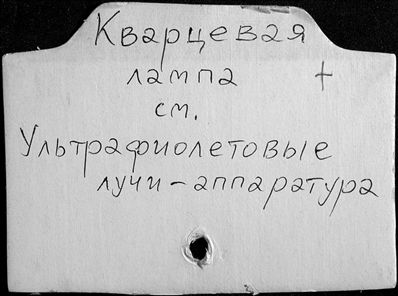 Кварцевая
лампа +
см.
Ультрафиолетовые
лучи - аппаратура